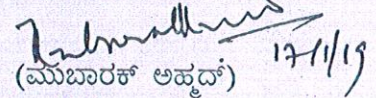 17/1/19
(ಮುಬಾರಕ್ ಅಹ್ಮದ್)